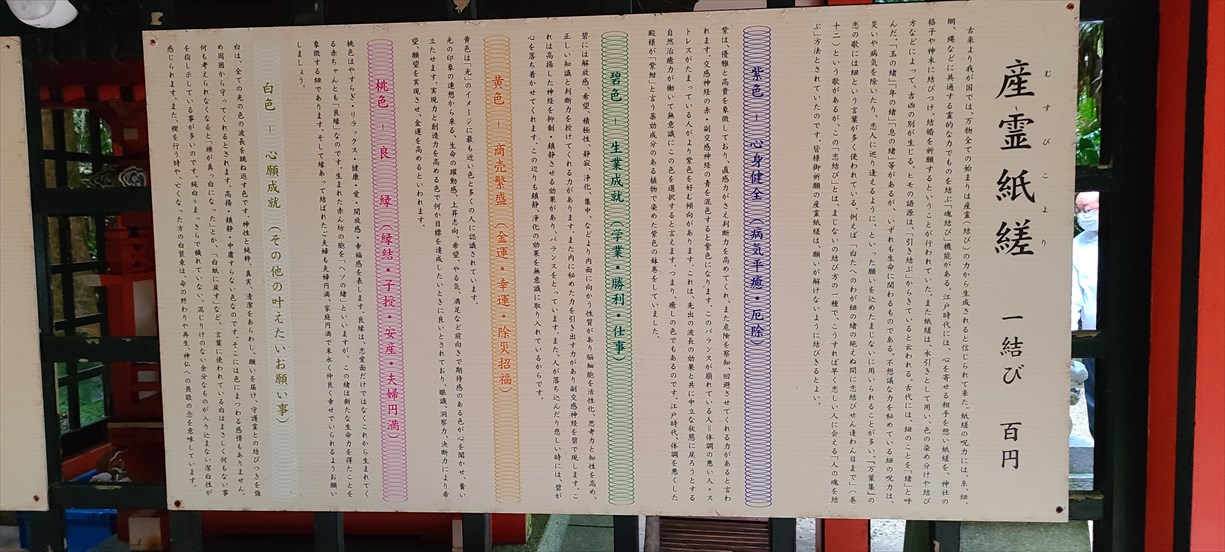 産霊紙縒 一結び 百円
むすびこより
古来より我が国では、万物全ての始まりは産霊(結び)の力から生成されると信じられて来た。紙縒の呪力には、糸、紐、
綱、縄などに共通する霊的な力でものを結ぶ「魂結び」機能がある。江戸時代には、心を寄せる相手を想い紙縒を、神社の
格子や神木に結びつけ、結婚を祈願するということが行われていた。また紙縒は、水引きとして用い、色の染め分けや結び
方などによって、吉凶の別が生じる。ヒモの語源は、「引き結ぶ」からきていると云われる。古代には、紐のことを「緒」と呼
んだ。「玉の緒」「年の緒」「息の緒」等があるが、いずれも生命に関わるものである。不思議な力を秘めている紐の呪力は、
災いや病気を除いたり、恋人に巡り逢えるように、といった願いを込めたまじないに用いられることが多い。「万葉集」の
恋の歌には紐という言葉が多く使われている。例えば「白たへのわが紐の緒の絶えぬ間に恋結びせん逢わん日まで」(巻
十二)という歌があるが、この「恋結び」とは、まじないの結び方の一種で、こうすれば早く恋しい人に会える「人の魂を結
ぶ」方法とされていたのです。皆様御祈願の産霊紙縒は、願いが解けないように結びきるとよい。
紫色 = 心身健全 (病気平癒・厄除)
紫は、優雅と高貴を象徴しており、直感力がさえ判断力を高めてくれ、また危険を察知・回避させてくれる力があると言わ
れます。交感神経の赤・副交感神経の青を混色すると紫色になります。このバランスが崩れている人=体調の悪い人・ス
トレスがたまっている人がより紫色を好む傾向があります。これは、先出の波長の効果と共に中立な状態に戻ろうとする
自然治癒力が働いて無意識にこの色を選択すると言えます。つまり、癒しの色でもあるのです。江戸時代、体調を悪くした
殿様が「紫紺」と言う薬効成分のある植物で染めた紫色の鉢巻をしていました。
碧色 = 生業成就 (学業・勝利・仕事)
碧には解放感、希望、積極性、静寂、浄化、集中、などより内面に向かう性質があり脳細胞を活性化、思考力と知性を高め、
正しい知識と判断力を授けてくれる力があります。また内に秘めた力を引き出す力があり副交感神経を碧で現します。こ
れは高揚した神経を抑制・鎮静させる効果があり、バランスをとっています。また、人が落ち込んだり悲しい時には、碧が
心を落ち着かせてくれます。この辺りも鎮静、浄化の効果を無意識に取り入れているからです。
黄色 = 商売繁盛 (金運・幸運・除災招福)
黄色は「光」のイメージに最も近い色と多くの人に認識されています。
光の印象の連想から来る、生命の躍動感、上昇志向、希望、やる気、満足など前向きで期待感のある色が心を開かせ、奮い
立たせます。実現力と創造力を高める色で何か目標を達成したいときに良いとされており、眼識、洞察力、決断力により希
望、願望を実現させ、金運を高めるといわれます。
桃色 = 良 縁 (縁結・子授・安産・夫婦円満)
桃色はやすらぎ・リラックス・健康・愛・開放感・幸福感を表します。良縁は、恋愛面だけではなくこれから生まれてく
る赤ちゃんとも「良縁」なのです。生まれた赤ん坊の臍を「ヘソの緒」といいますが、この緒は新たな生命力を得たことを
象徴する緒であります。そして縁あって結ばれたご夫婦も夫婦円満、家庭円満で末永く仲良く幸せでいられるようお願い
しましょう。
白色 = 心願成就 (その他の叶えたいお願い事)
白は、全ての光の色の波長を跳ね返す色です。神性と純粋、真実、清潔をあらわし、願いを届け、守護霊との結びつきを強
め周囲から守ってくれるとされます。高揚・鎮静・中庸すらない色なのです。そこには色にまつわる感情もありません。
何も考えられなくなると「頭が真っ白になった」とか、「白紙に戻す」など、言葉に使われている白はまさしく何もない事
を指し示している事が多いのです。純白=まっさらで穢れていない、混じりけのない余分なものが入り込まない潔白性が
感じられます。また、禊を行う時や、亡くなった方の白装束は、命の終わりや再生、神仏への畏敬の念を意味しています。